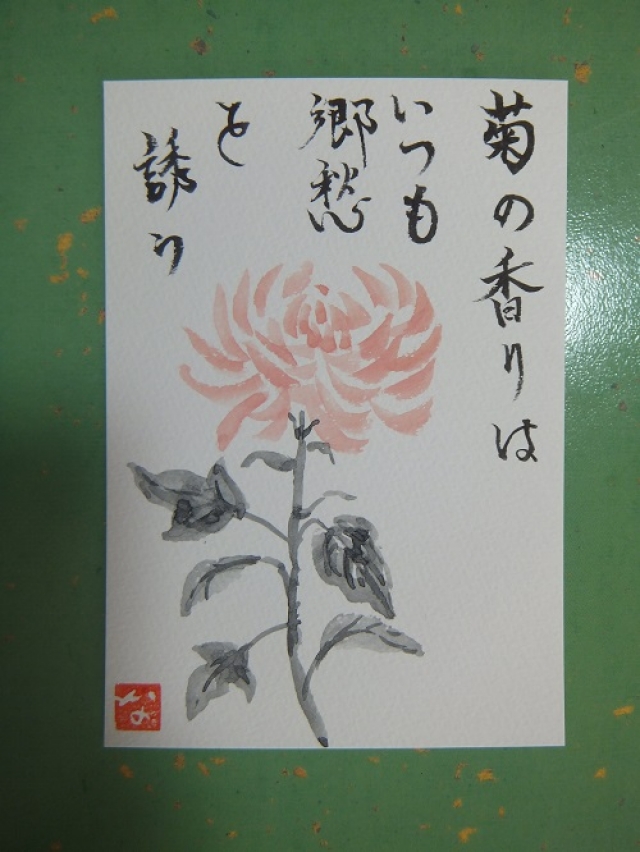 菊の香りは
いつも
郷愁
を
誘う